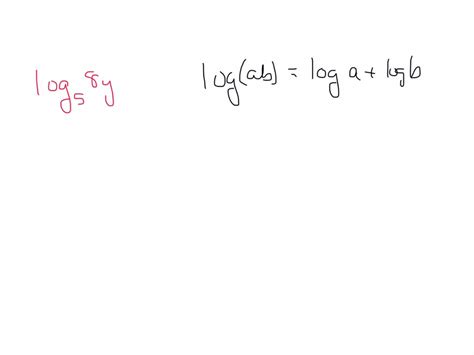 log₅8y
log(ab) = log a + log b